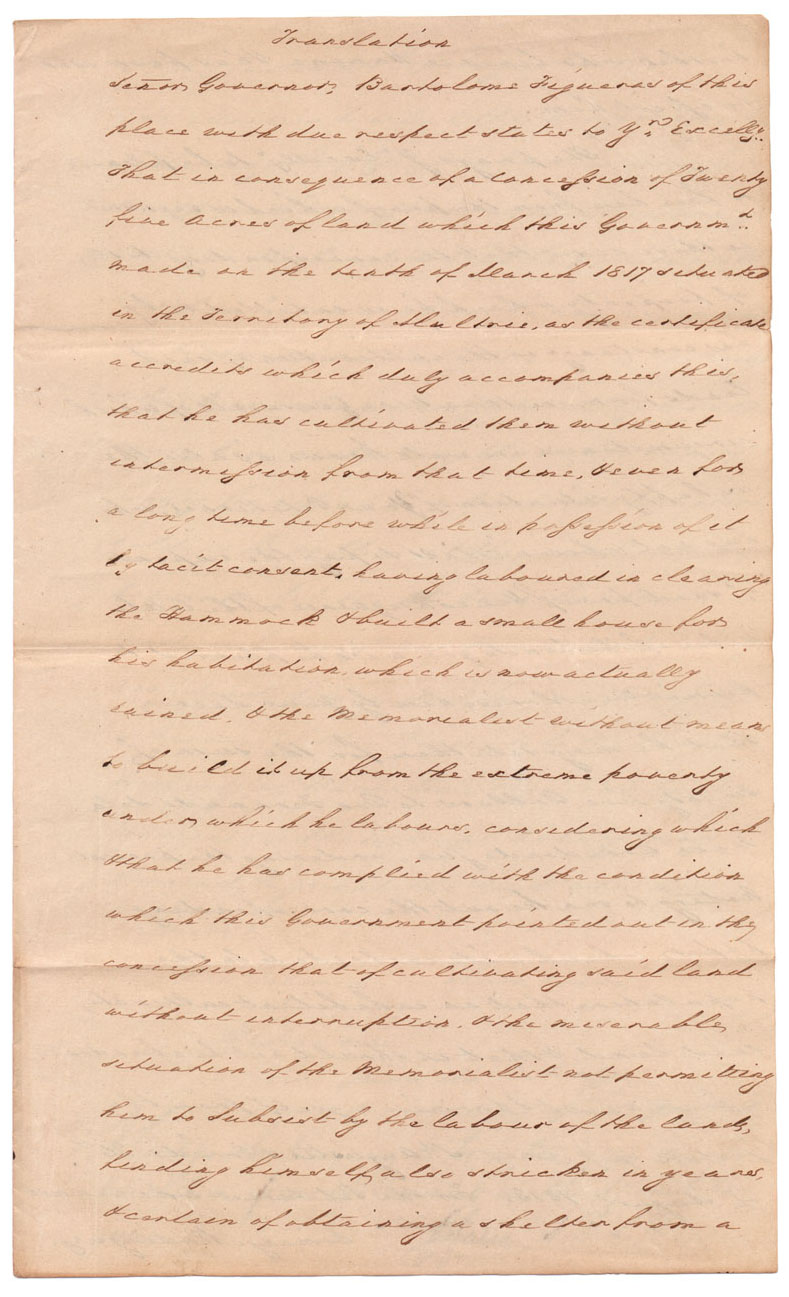 Translation
Señor Governor, Bartolome Figueras of this
place with due respect states to Yrd. Excelly.
That in consequence of a concession of Twenty
five Acres of land which this Governmt.
made on the tenth of March 1817 situated
in the Territory of Multrie, as the certificate
accredits which duly accompanies this,
that he has cultivated them without
intermission from that time, & even for
a long time before while in possession of it
by tacit consent, having laboured in clearing
the Hammock & built a small house for
his habitation, which is now actually
ruined, & the Memorialist without means
to build it up from the extreme poverty
under which he labours, considering which
& that he has complied with the condition
which this Government pointed out in the
concession that of cultivating said land
without interruption, & the meserable
situation of the Memorialist not permitting
him to Subsist by the labour of the land,
finding himself also stricken in years,
& certain of obtaining a shelter from a